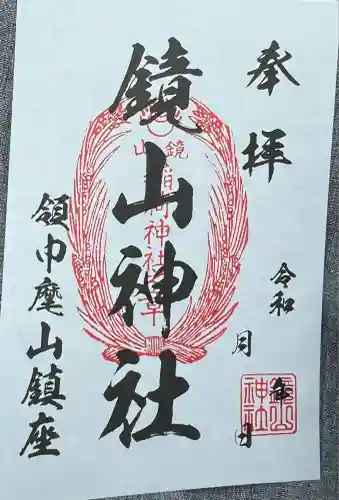 奉拝
令和 年 月 日
鏡山神社
鏡山
稲荷神社
領巾麾山鎮座
鏡山
神社